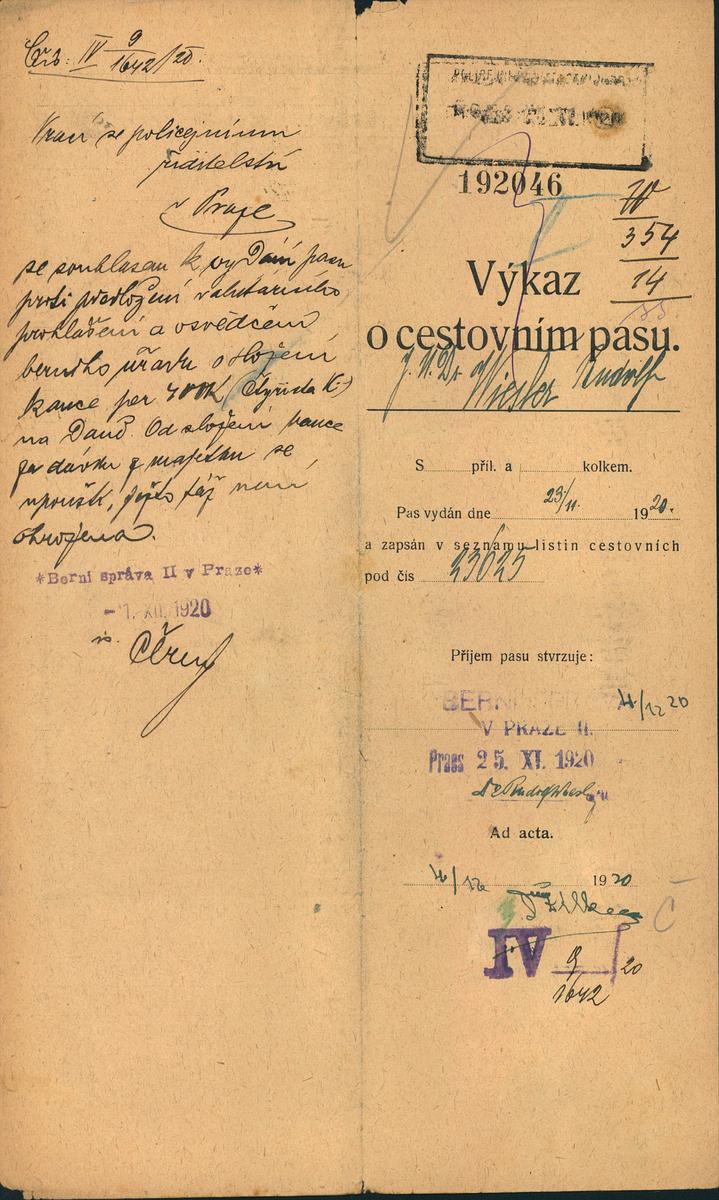 Čís: IV 9/1642/20.
Vrací se policejnímu
ředitelství
v Praze
se souhlasem k vydání pasu
proti předložení valutárního
prohlášení a osvědčení
berního úřadu o složení
kauce per 400K (čtyřista K)
na daně. Od složení kauce
za dávku z majetku se
upouští, ježto táž není
ohrožena.
*Berní správa II v Praze*
-1. XII. 1920
192046
IV
354
14
Výkaz
o cestovním pasu.
J. U. Dr. Wiesler Rudolf
S příl. a kolkem.
Pas vydán dne 23/11. 1920.
a zapsán v seznamu listin cestovních
pod čís 23025
Příjem pasu stvrzuje:
BERNÍ 4/12 20
V PRAZE II.
Praes 25. XI. 1920
Ad acta.
4/12 1920
Č
IV 9/1642 20